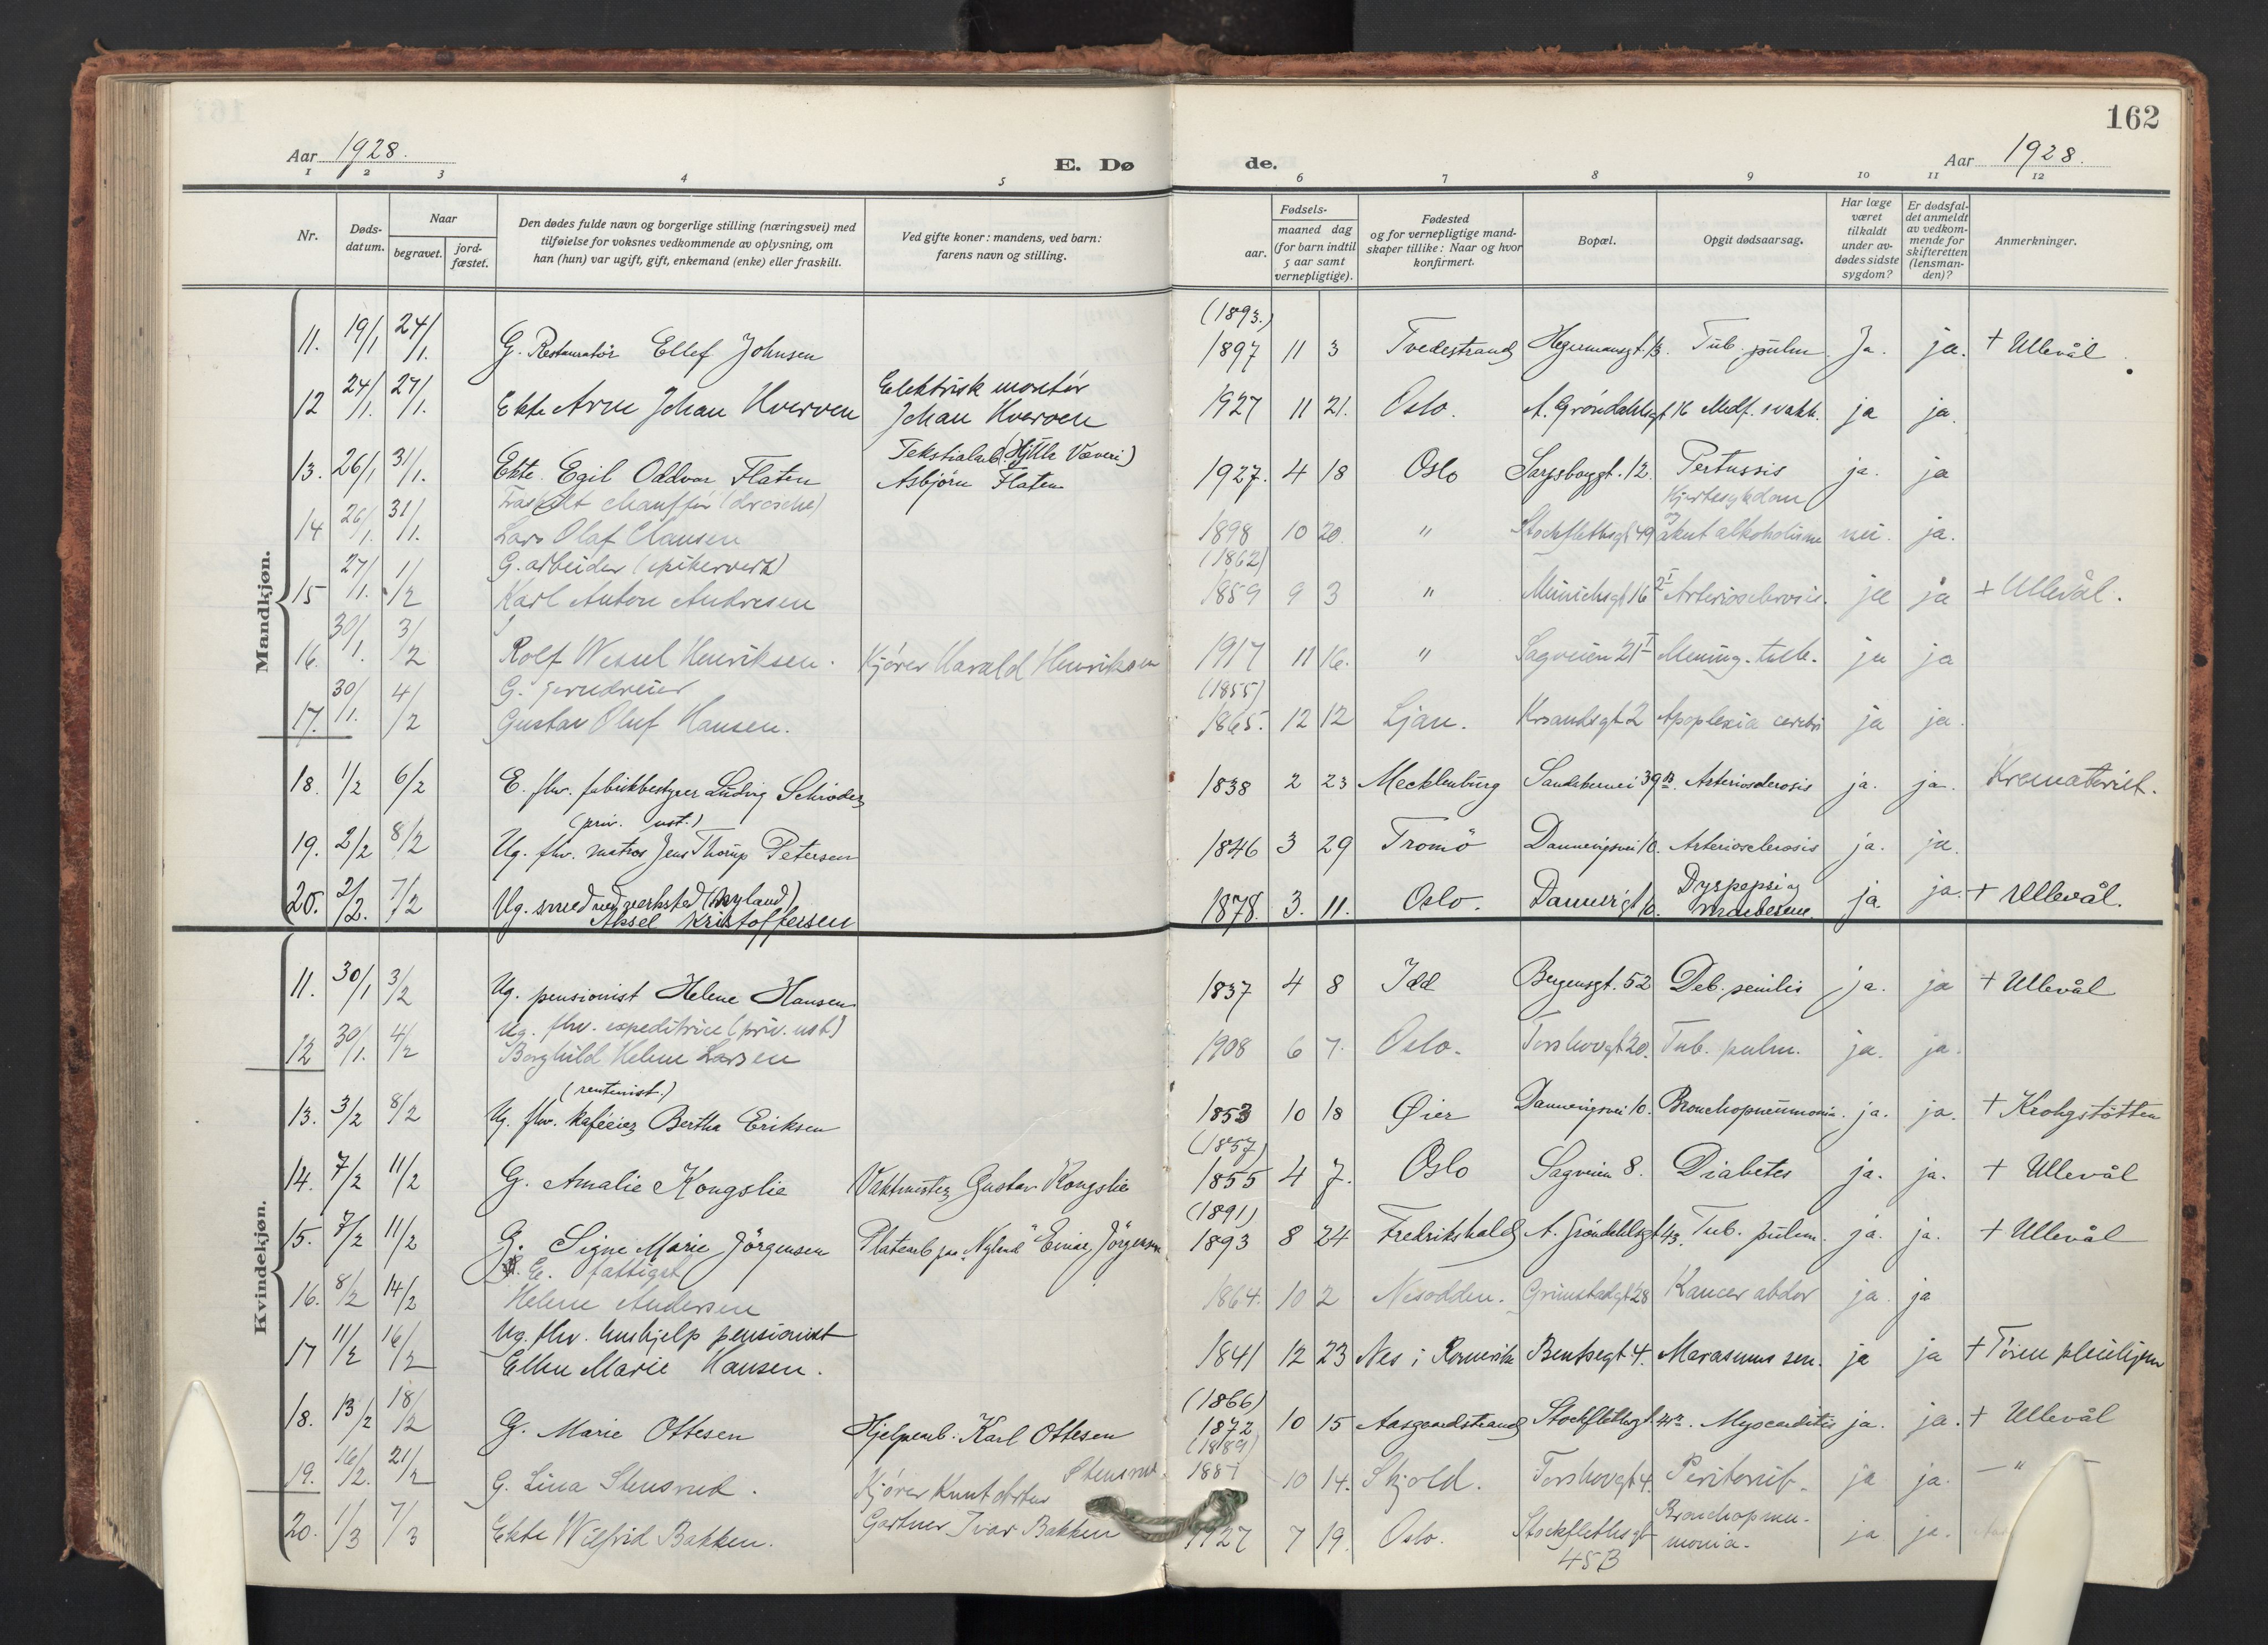 162
Aar 1928.
E. Dø
de.
Aar 1928.
1 2 3 4 5 6 7 8 9 10 11 12
Nr.
Døds-
datum.
Naar
begravet.
jord-
fæstet.
Den dødes fulde navn og borgerlige stilling (næringsvei) med
tilføielse for voksnes vedkommende av oplysning, om
han (hun) var ugift, gift, enkemand (enke) eller fraskilt.
Ved gifte koner: mandens, ved barn:
farens navn og stilling.
Fødsels-
aar.
maaned dag
(for barn indtil
5 aar samt
vernepligtige).
Fødested
og for vernepligtige mand-
skaper tillike: Naar og hvor
konfirmert.
Bopæl.
Opgit dødsaarsag.
Har læge
været
tilkaldt
under av-
dødes sidste
sygdom?
Er dødsfal-
det anmeldt
av vedkom-
mende for
skifteretten
(lensman-
den)?
Anmerkninger.
Mandkjøn.
(1893.)
11. 19/1 24/1. G. Restauratør Ellef Johnsen 1897 11 3 Tvedestrand Hegermansgt. 13. Tub. pulm. Ja. ja. + Ullevål
Elektrisk montør
12 24/1. 27/1. Ekte Arne Johan Hverven Johan Hverven 1927 11 21. Oslo. A. Grøndahlsgt 16 Medf. svakh. ja ja.
Tekstilarb. (Hjula Væveri)
13. 26/1 31/1. Ekte Egil Oddvar Flaten Asbjørn Flaten 1927. 4 18 Oslo Sarpsborggt. 12. Pertussis ja. ja
Fraskilt chauffør (drosche) Hjertesykdom
14 26/1. 31/1. Lars Olaf Clausen 1898 10 20. " Stockflethsgt 49 og akut alkoholisme nei. ja.
G. arbeider (spikerverk) (1862)
15 27/1. 1/2 Karl Anton Andresen 1859 9 3 " Münichsgt 16 Arteriosclerosis. ja ja + Ullevål.
16. 30/1. 3/2 Rolf Wessel Henriksen. Kjører Harald Henriksen 1917 11 16. " Sagveien 21 I Mening. tub. ja ja
G. (1855)
17. 30/1. 4/2 Gustav Oluf Hansen. 1865. 12 12 Ljan. Krsandsgt. 2 Apoplexia cerebri ja ja.
18. 1/2 6/2 E. fhv. fabrikbestyrer Ludvig Schrøder 1838 2 23 Mecklenburg Sandakervei 39 B. Arteriosclerosis ja. ja. Krematoriet.
(priv. ust.)
19. 2/2 8/2 Ug. fhv. matros Jens Thorup Petersen 1846 3 29 Tromö Dannevigsvei 10. Arteriosclerosis ja. ja.
20. 2/2. 7/2 Ug. smed ved verksted (Nyland) 1878. 3. 11. Oslo. 10. Dyspepsi og ja. ja. + Ullevål.
Aksel Kristoffersen
Kvindekjøn.
11. 30/1 3/2 Ug. pensionist Helene Hansen. 1837 4 8 Idd Bergensgt. 52 Deb. senilis ja. ja + Ullevål
Ug. fhv. expeditrice (priv. ust)
12 30/1. 4/2 Borghild Helene Larsen 1908 6 7. Oslo. Torshovgt 20. Tub. pulm. ja. ja.
(rentenist.)
13. 3/2 8/2 Ug. fhv. kaféeier Bertha Eriksen 1853 10 18 Øier Dannevigsvei 10. Bronchopneumonia. ja. ja. + Krohgstøtten
(1857)
14. 7/2 11/2 G. Amalie Kongslie Vaktmester Gustav Kongslie 1855 4 7. Oslo Sagveien 8. Diabetes ja. ja. + Ullevål
(1891)
15. 7/2 11/2 G. Signe Marie Jörgensen Platearb. paa "Nyland" Einar Jörgensen 1893 8 24 Fredrikshald A. Grøndahlsgt 43. Tub. pulm. ja. ja. + Ullevål
E. fattigat
16. 8/2 14/2 Helene Andersen 1864. 10 2 Nesodden. Grimstadgt 28 Kancer abdom ja. ja
Ug. fhv. hushjelp pensionist
17 11/2 16/2 Ellen Marie Hansen. 1841 12 23 Nes i Romerike Bentsegt. 4. Marasmus sen. ja ja + Tøien pleiehjem
(1866)
18. 13/2 18/2 G. Marie Ottesen Hjelpearb. Karl Ottesen 1872 10 15 Aasgaardstrand Stockflethsgt Myocarditis ja. ja. + Ullevål
(1889)
19. 16/2. 21/2 G. Lina Stensrud. Kjører Knut Stensrud 1887 10 14. Skjold. Torshovgt 4. Peritonit. ja ja. — " —
20. 1/3 7/3 Ekte Wilfrid Bakken. Gartner Ivar Bakken 1927 7 19. Oslo. Stockflethsgt 45B Bronchopneumonia. ja ja.